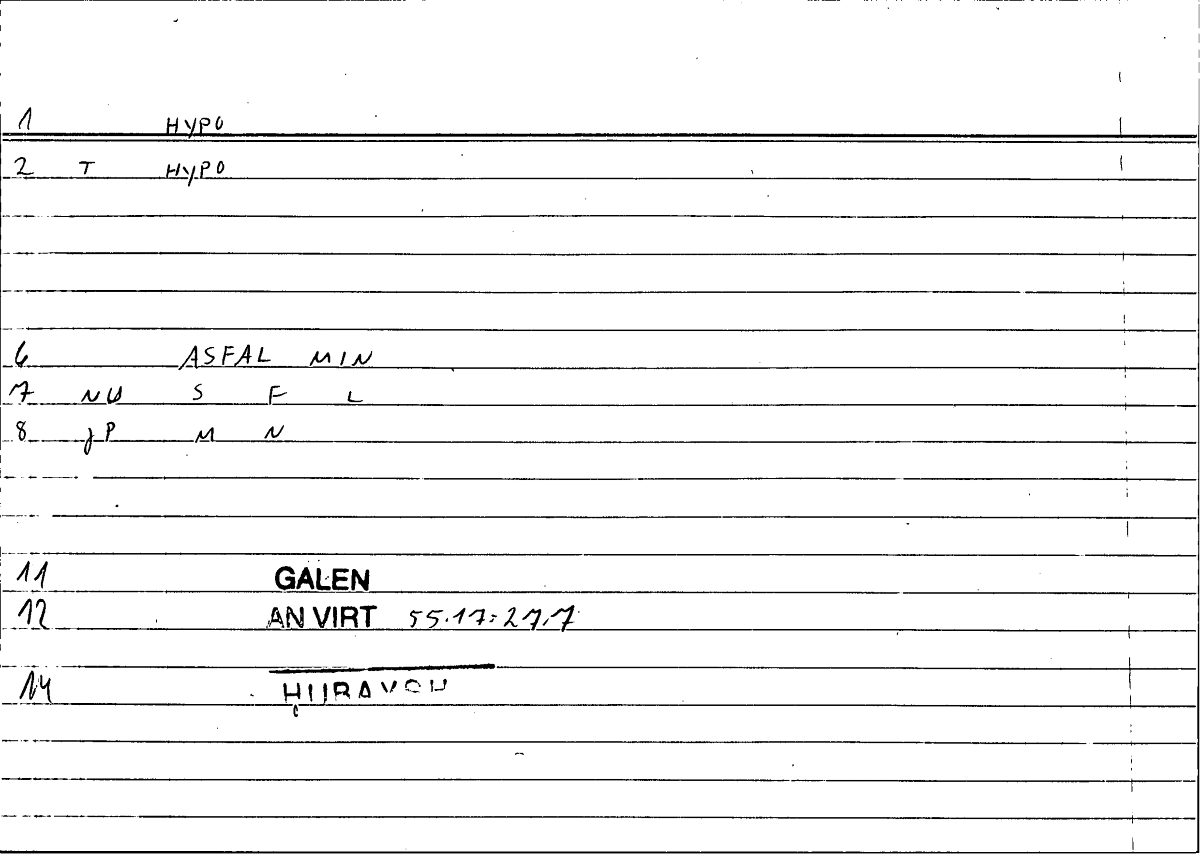 1 HYPO
2 T HYPO
6 ASFAL MIN
7 NU S F L
8 JP M N
11 GALEN
12 AN VIRT 55.17=27.7
14